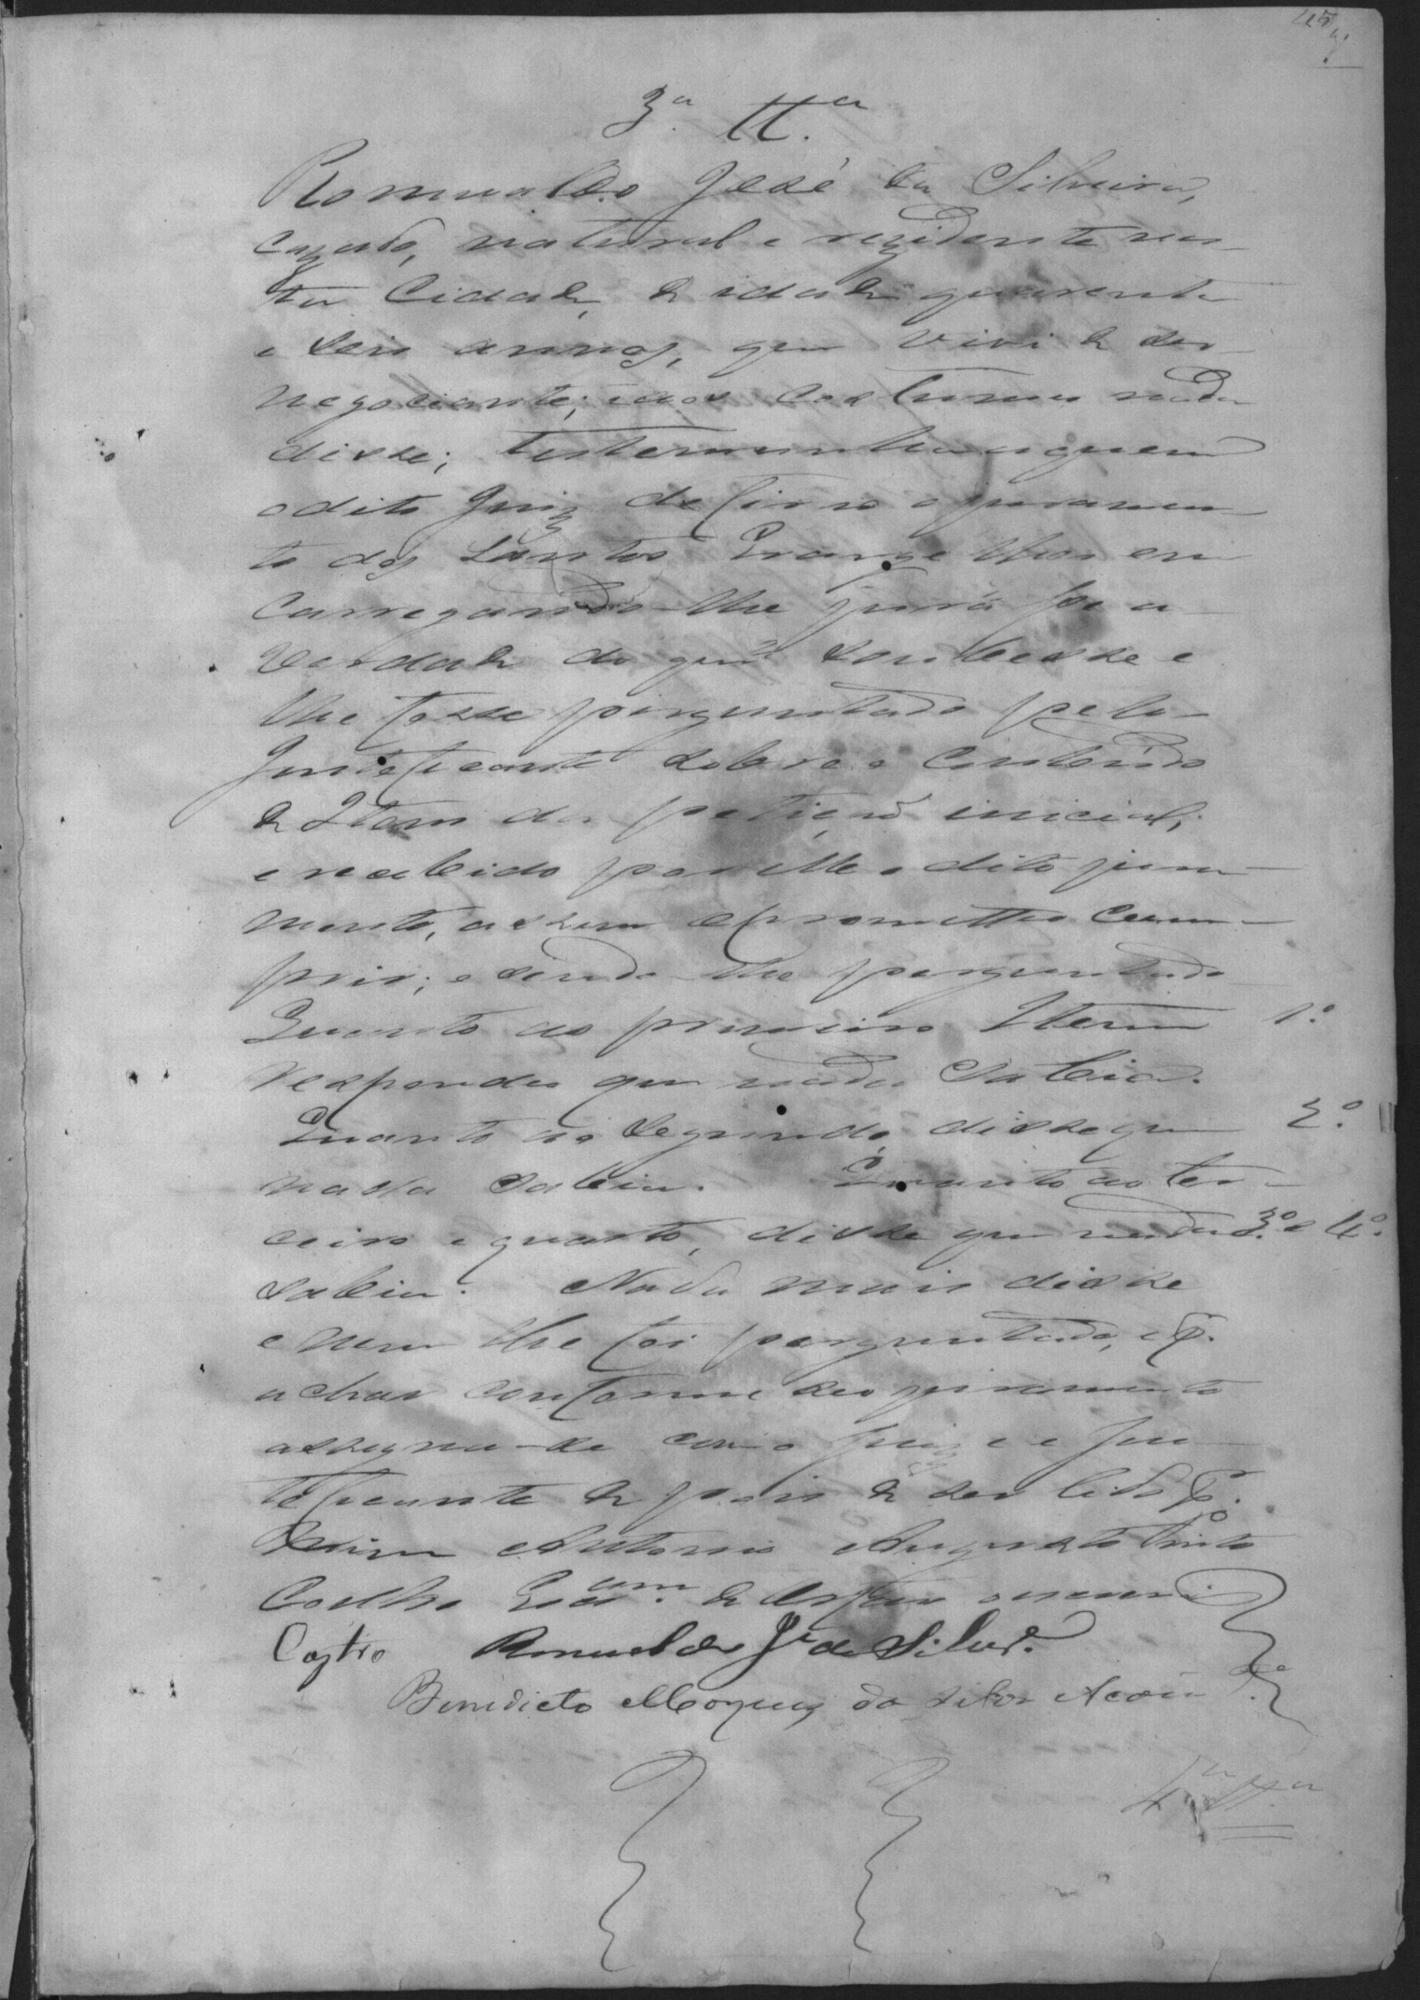 3.ª Tt.ª
Romualdo José da Silveira,
cazado, natural e rezidente nes-
ta Cidade, de idade quarenta
e seis annos, que vive de ser
negociante; aos costumes nada
disse; testemunha a quem
o dito Juiz deferio o juramen-
to dos Santos Evangelhos en
carregando-lhe jurasse a
verdade do que soubesse e
lhe fosse perguntado pelo
Justeficante sobre o contendo
de Itens da petição inicial;
e recebido por elle o dito jura-
mento, assim o prometteo cum-
prir; e sendo-lhe perguntado
Quanto ao primeiro Item 1.º
respondeu que nada sabia.
Quanto ao segundo, disse que 2.º
nada sabia. Quanto ao ter-
ceiro e quarto, disse que nada 3.º e 4.º
sabia. Nada mais disse
e nem lhe foi perguntado, e p.
achar conforme seo juramento
assigna-se com o Juiz e o Jus-
teficante depois de ser lido p.
mim Antonio Augusto Pinto
Coelho Escr.am de Orfãos o escrevi
Castro Romualdo J.e da Silvr.ª
Benedicto Marques da Silva
4.ª Tt.ª